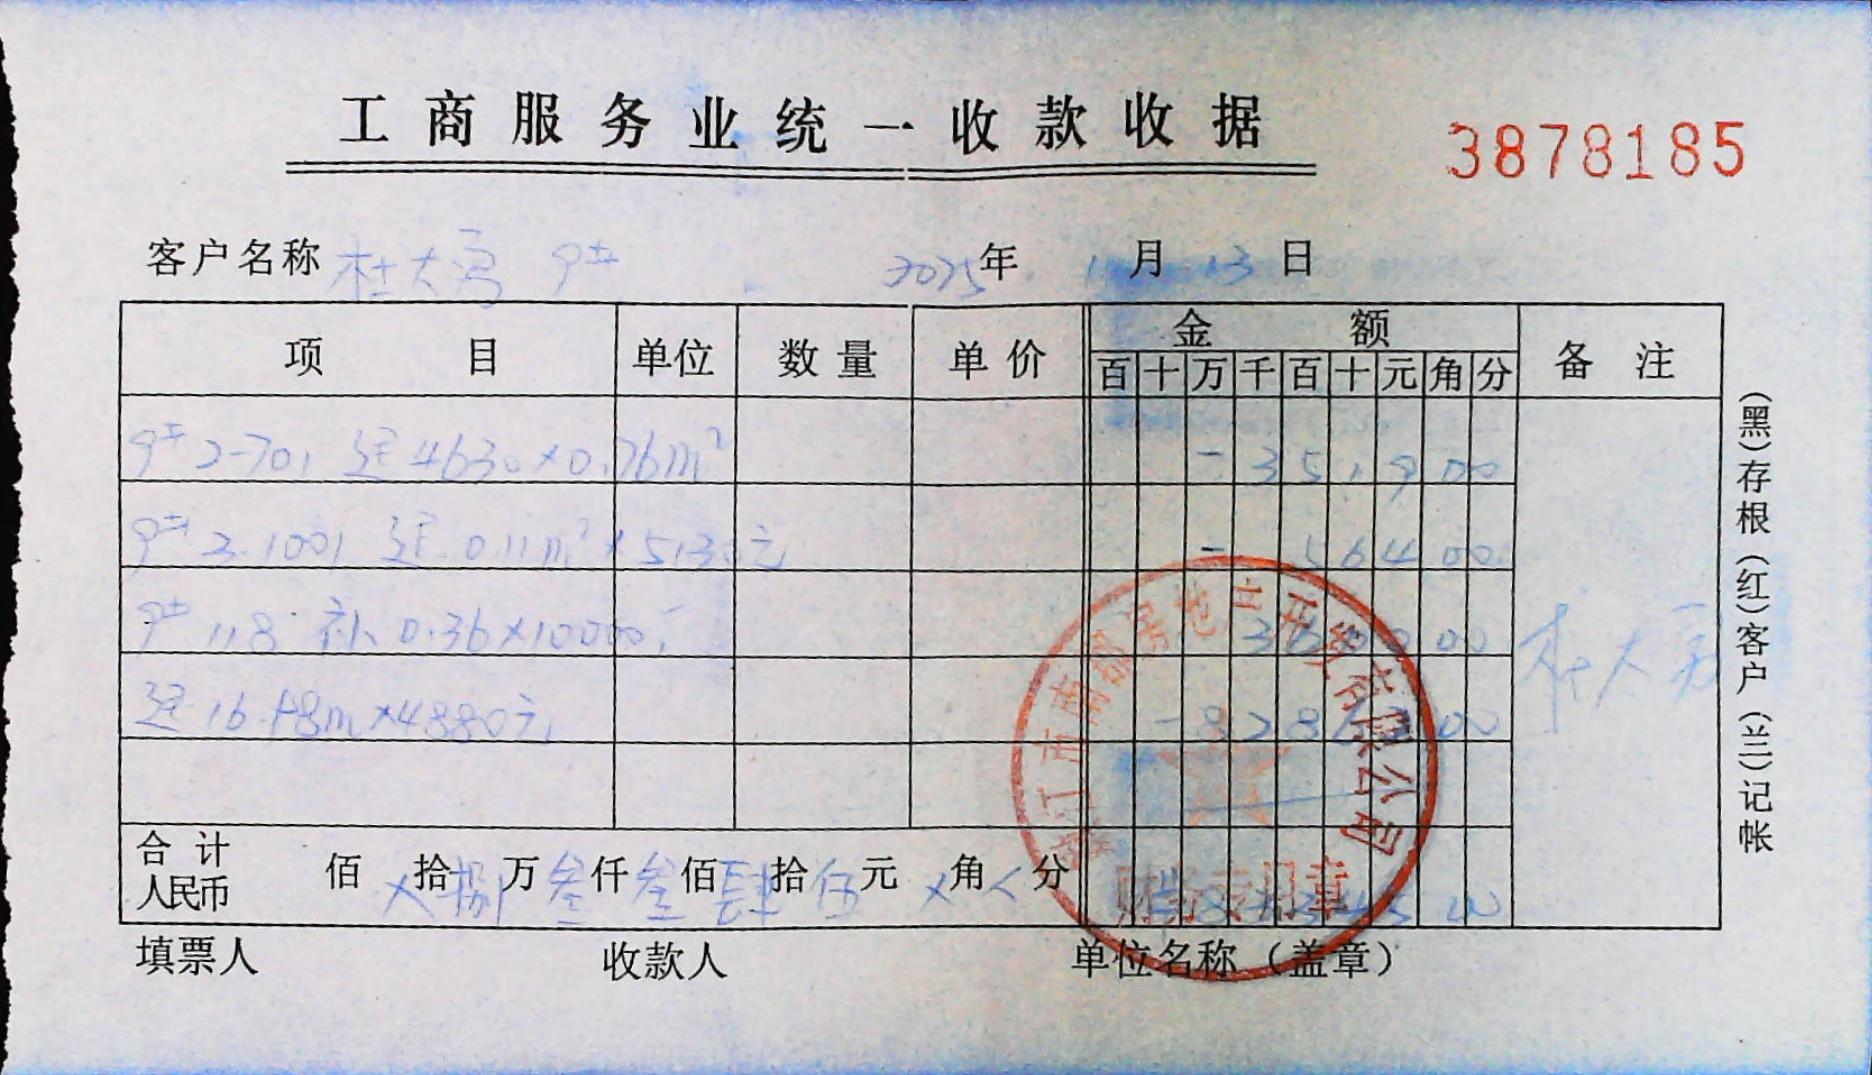 工商服务业统一收款收据
3878185
客户名称 杜大勇 9# 2025年 11月 13日
项目 单位 数量 单价 金额 备注
百 十 万 千 百 十 元 角 分
9# 2-701 退 4630×0.76m² -3519 00
9# 3.1001 退 0.11m²×5130元 -564 00
9# 118 补 0.36×10000 3600 00
退 16.98m×4880元 -82862 00
杜大勇
合计人民币 佰 ×拾 捌万 叁仟 叁佰 肆拾 伍元 ×角 ×分 -83345 00
填票人 收款人 单位名称（盖章）
(黑)存根(红)客户(兰)记帐
江市南郡房地产开发有限公司
财务专用章